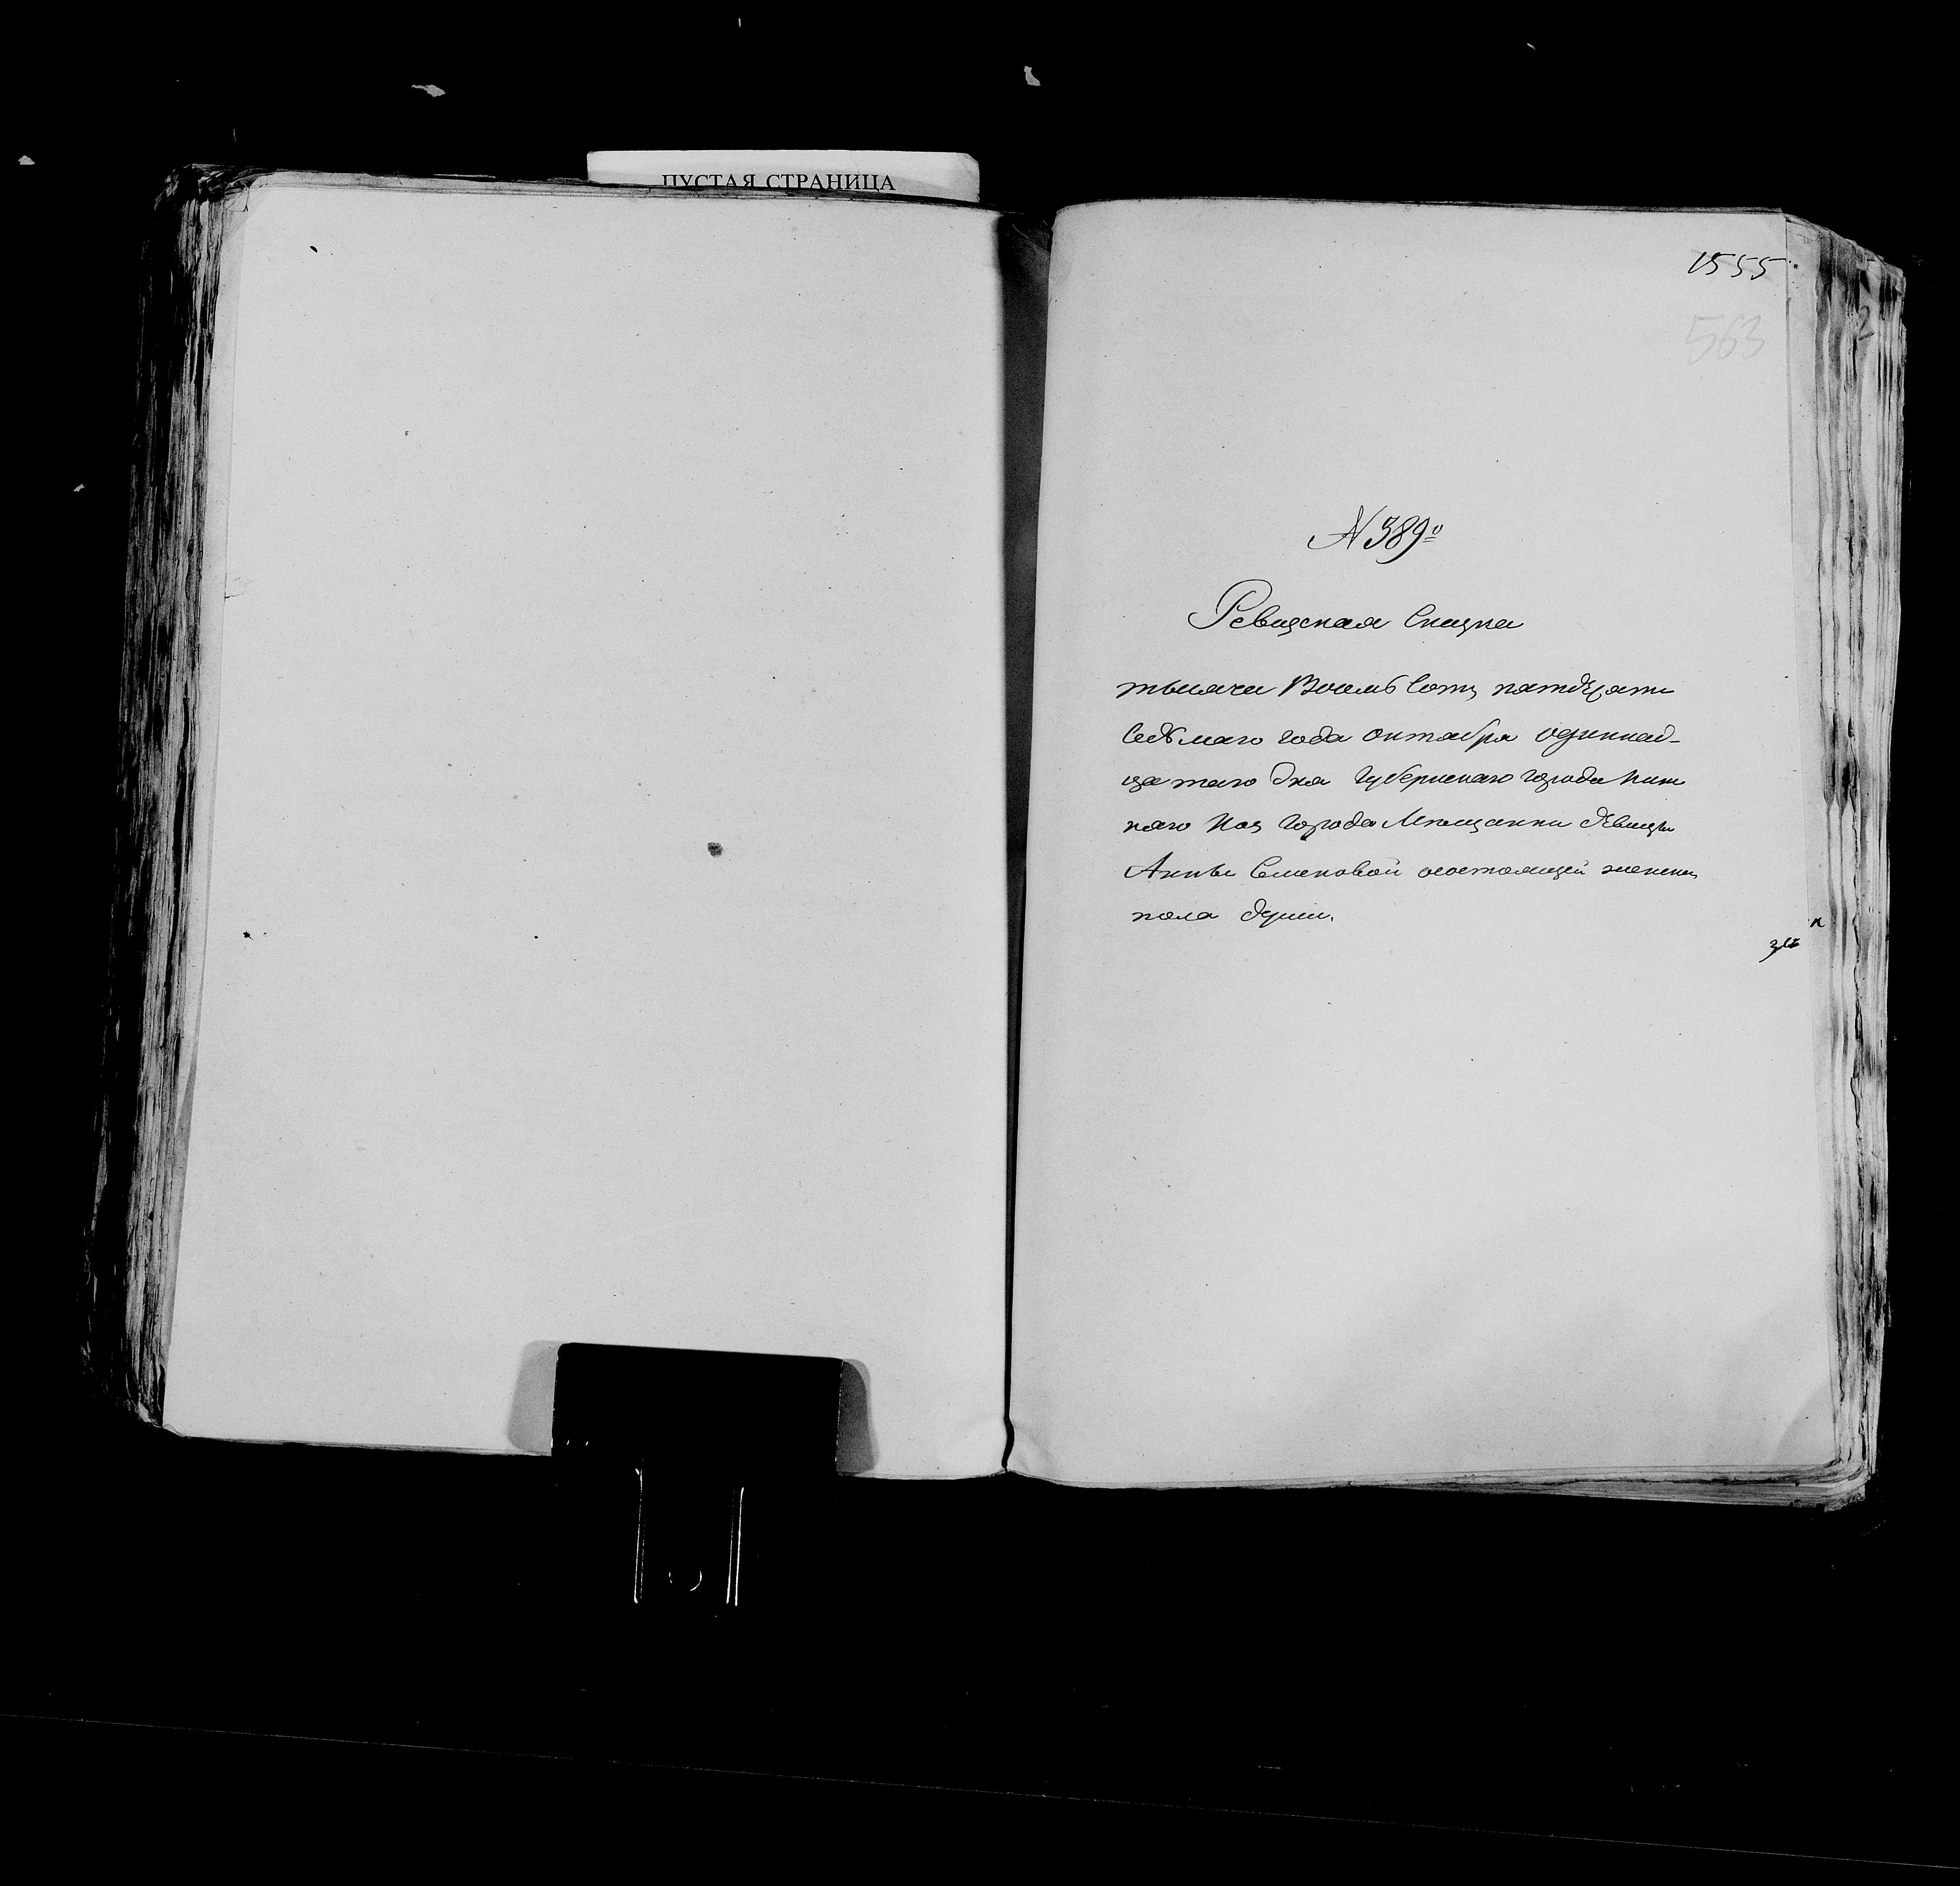 ПУСТАЯ СТРАНИЦА
1555
563
2
N 389º
Ревизская Сказка
тысяча Восемь Сотъ пятдесяти
Седьмаго года октября одиннад-
цатаго дня Губернскаго города
города Мещанки девицы
Анны Семеновой состоящей женска
пола души.